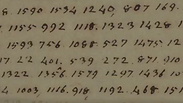 8 1590 1534 1240 807 169.
1155 992 1118. 1323 1428
1593 756 1088 527 1475 12
22 401. 539 272 871 910
1322 1356 1579 1297 1436 10
1003, 1116. 918 1192. 468 151